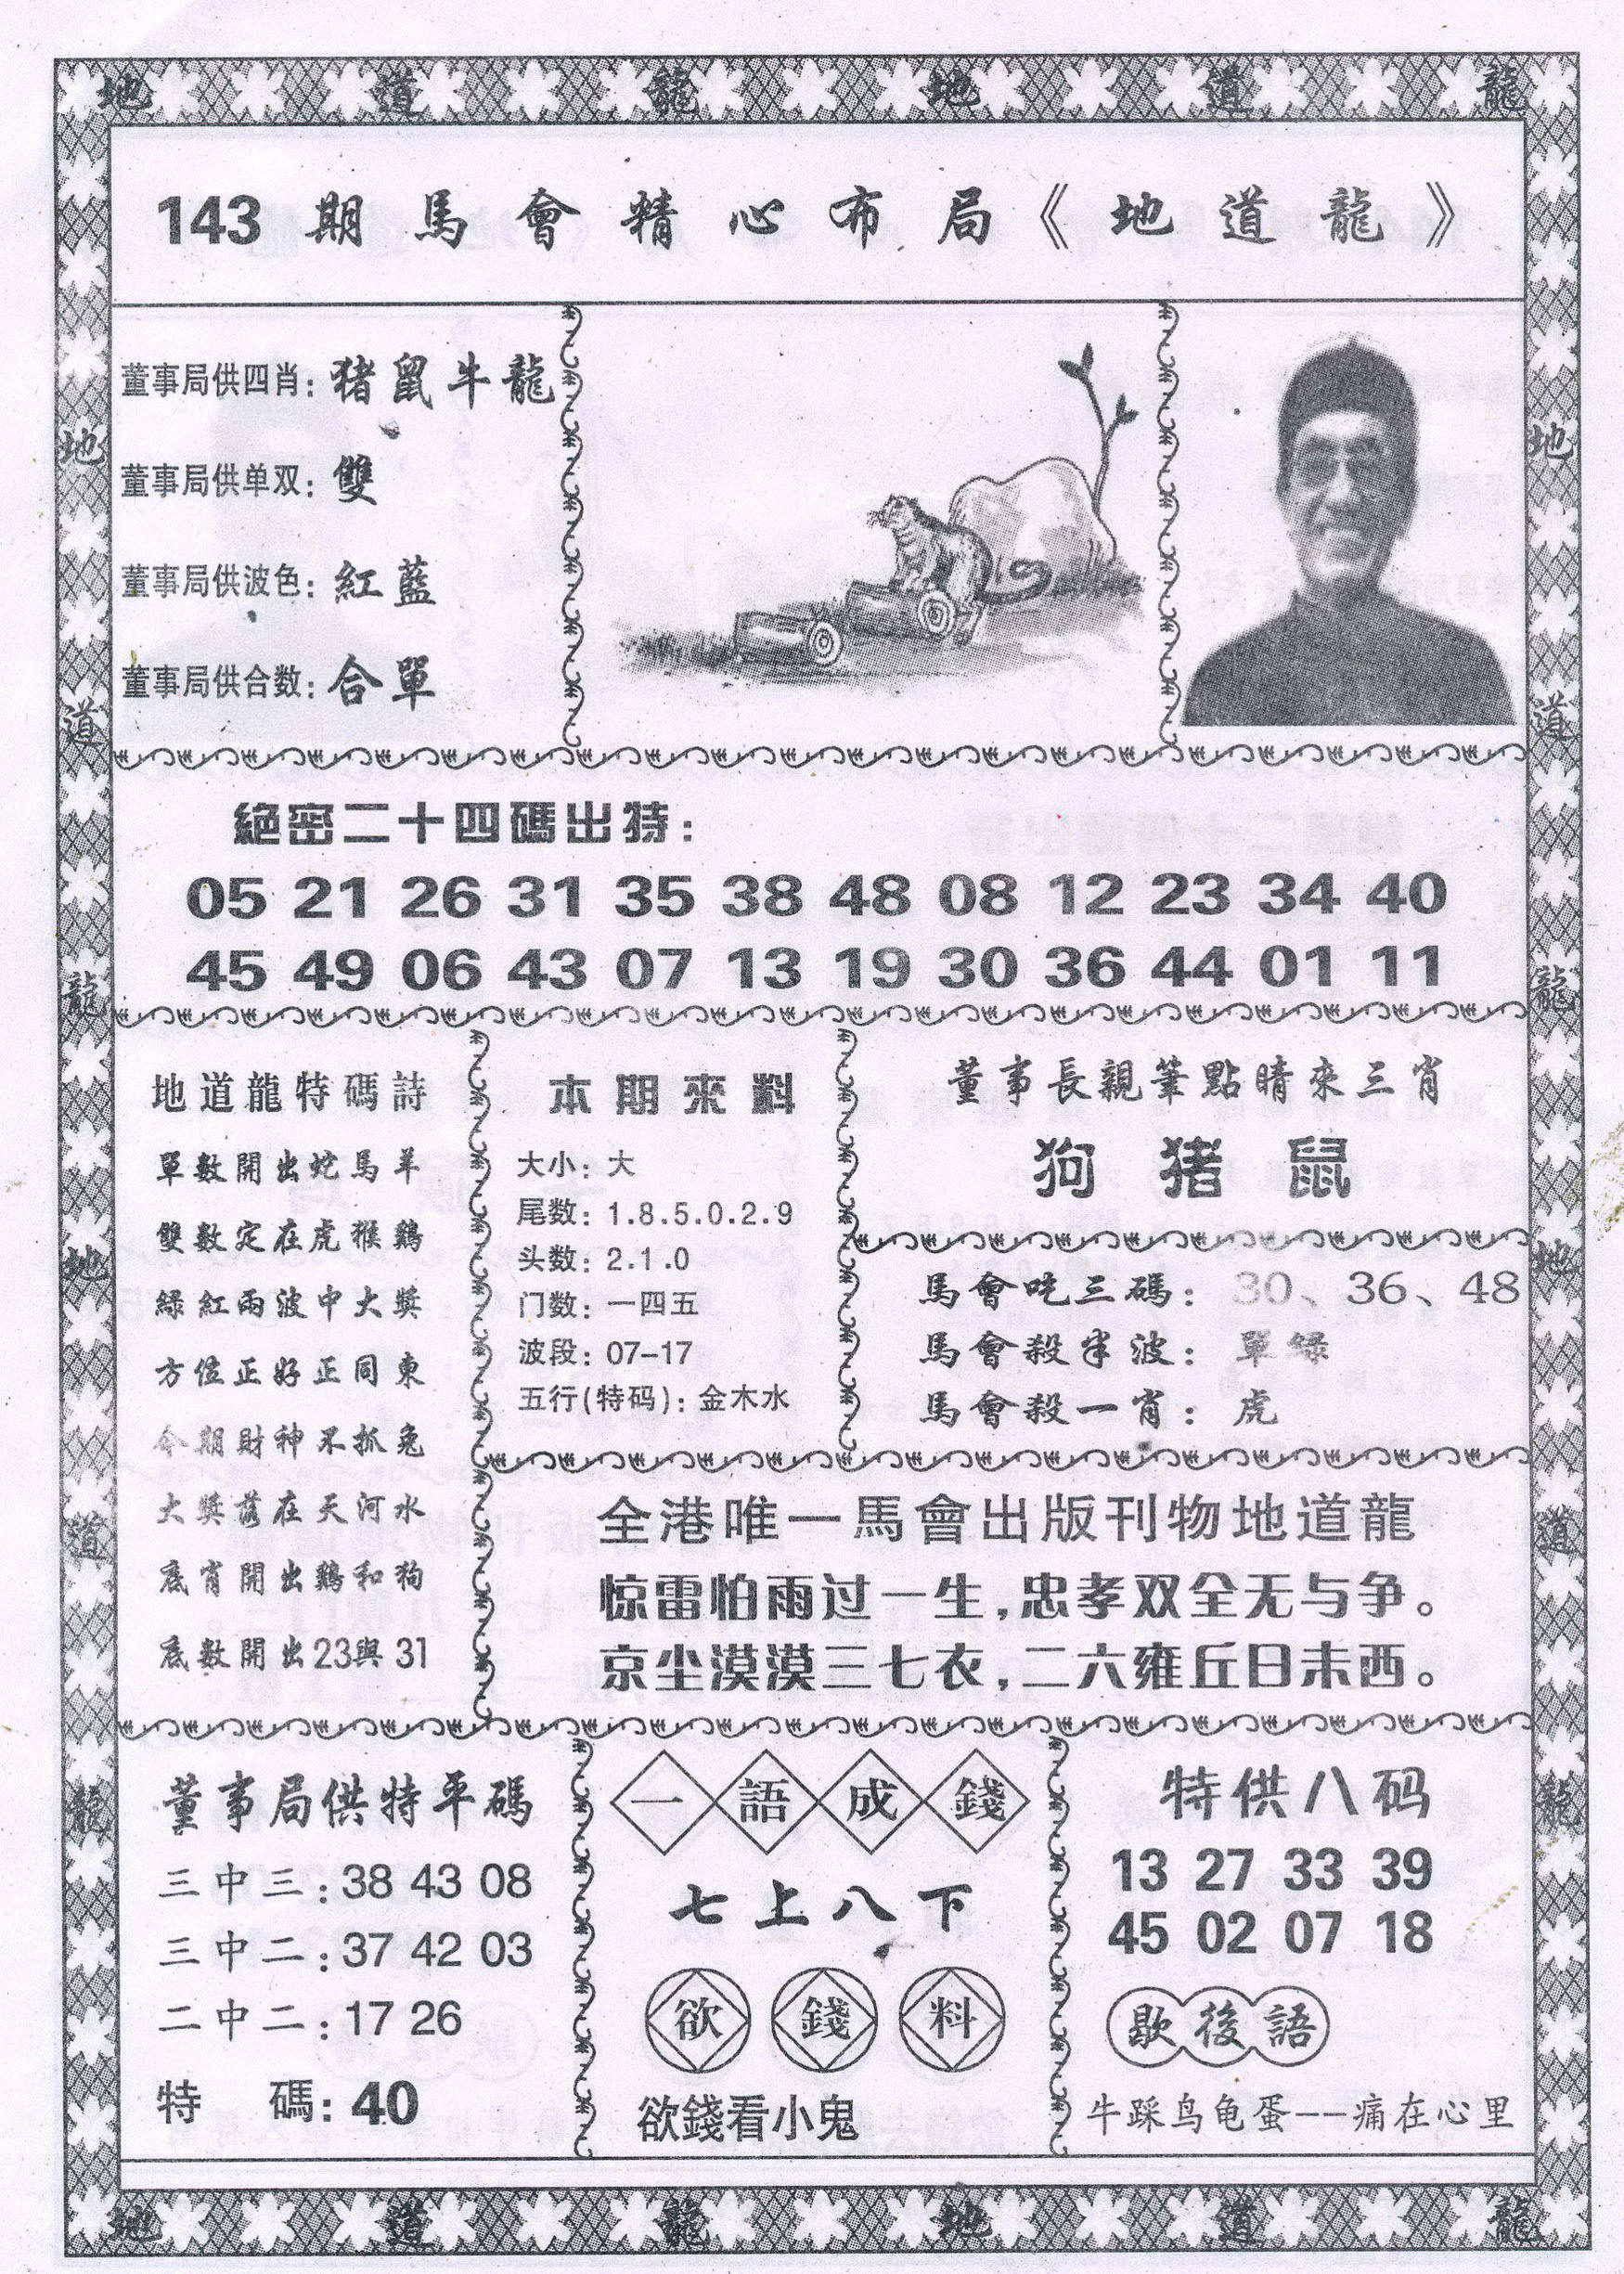 地 道 龍 地 道 龍
143 期馬會精心布局《地道龍》
董事局供四肖：猪鼠牛龍
董事局供单双：雙
董事局供波色：紅藍
董事局供合数：合單
絕密二十四碼出特：
05 21 26 31 35 38 48 08 12 23 34 40
45 49 06 43 07 13 19 30 36 44 01 11
地道龍特碼詩
單數開出蛇馬羊
雙數定在虎猴鷄
綠紅兩波中大獎
方位正好正同東
今期財神不抓兔
大獎落在天河水
底肖開出鷄和狗
底數開出23與31
本期來料
大小：大
尾数：1.8.5.0.2.9
头数：2.1.0
门数：一四五
波段：07-17
五行(特码)：金木水
董事長親筆點睛來三肖
狗 猪 鼠
馬會吃三碼：30、36、48
馬會殺半波：單綠
馬會殺一肖：虎
全港唯一馬會出版刊物地道龍
惊雷怕雨过一生，忠孝双全无与争。
京尘漠漠三七衣，二六雍丘日未西。
董事局供特平碼
三中三：38 43 08
三中二：37 42 03
二中二：17 26
特 碼：40
一語成錢
七上八下
欲錢料
欲錢看小鬼
特供八码
13 27 33 39
45 02 07 18
歇後語
牛踩鸟龟蛋--痛在心里
地 道 龍 地 道 龍
地 道 龍 地 道 龍
地 道 龍 地 道 龍